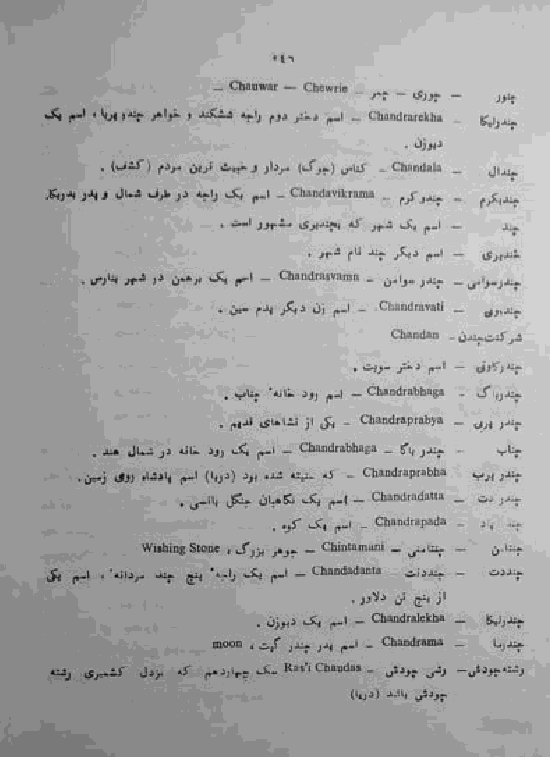 ۵۴۶
چنور — چوری — چمر — Chanwar — Chewrie —
چندرلیکا — Chandrarekha — اسم دختر دوم راجه ششکند و خواهر چندرپربا ، اسم یک
دیوزن .
چندال — Chandala — کناس (جرگ) مردار و خبیث ترین مردم (کشف) .
چندیکرم — چندوکرم — Chandavikrama — اسم یک راجه در طرف شمال و پدر
چند — اسم یک شهر که بچندیری مشهور است .
شدیری — اسم دیگر چند نام شهر .
چندرسوامی — چندر سوامن — Chandrasvama — اسم یک برهمن در شهر بنارس .
چندبوری — Chandravati — اسم زن دیگر پدم سین .
شرکندت‌چندن — Chandan
چندرکانی — اسم دختر سوبت .
چندربراگ — Chandrabhaga — اسم رود خانهٔ چناب .
چندر پری — Chandraprabya — یکی از نشاهای قدیم .
چناب — چندر باگا — Chandrabhaga — اسم یک رود خانه در شمال هند .
چندر پرب — Chandraprabha — که شده بود (دریا) اسم پادشاه روی زمین .
چندر دت — Chandradatta — اسم یک نگاهبان جنگل بالسی .
چند پاد — Chandrapada — اسم یک کوه .
چنتامن — چنتامنی — Chintamani — جوهر بزرگ ، Wishing Stone
چنددت — چنددنت — Chandadanta — اسم یک راجهٔ پنج چند مردانه ، اسم یکی
از پنج تن دلاور .
چندرلیکا — Chandralekha — اسم یک دیوزن .
چندرما — Chandrama — اسم پدر چندر گپت ، moon
رشته‌چودش — رشی چودش — Ras'i Chandas — یک چهاردهم که نزدل کشمیری رشته
چودش باشد (دریا)